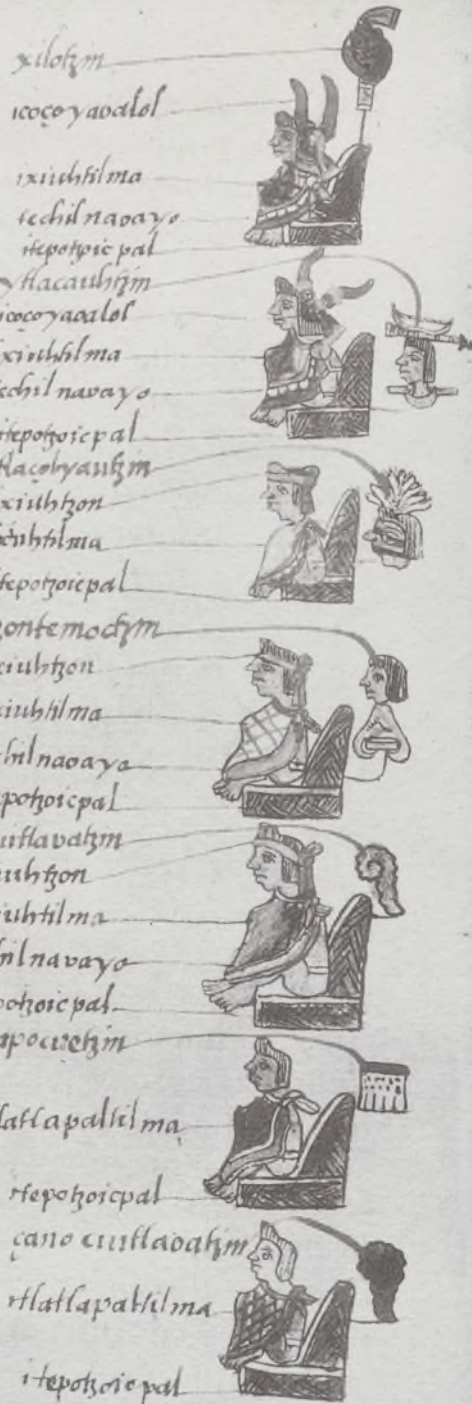 xilotzin
icoçoyaoalol
ixiuhtilma
techilnaoayo
itepotzoicpal
ytlacauhtzin
icoçoyaoalol
ixiuhtilma
techilnaoayo
itepotzoicpal
tlaçolyautzin
xiuhtzon
xiuhtilma
itepotzoicpal
tzontemoctzin
xiuhtzon
xiuhtilma
chilnaoayo
epotzoicpal
uitlaoatzin
iuhtzon
iuhtilma
hilnaoayo
potzoicpal
apocuetzin
tlatlapaltilma
itepotzoicpal
çano cuitlaoatzin
itlatlapaltilma
itepotzoicpal